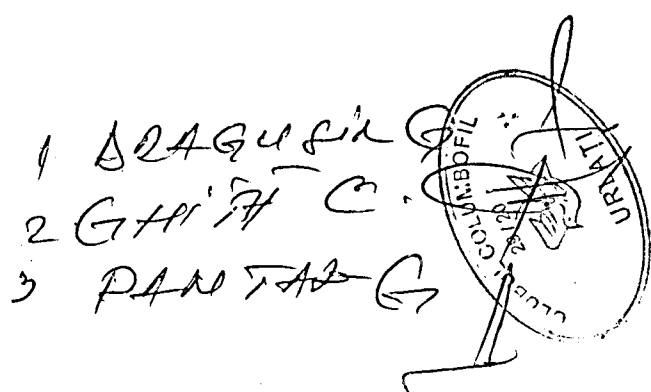 1 DRAGUSIN G
2 GHIȚĂ C.
3 PANTAZ G
CLUBUL COLUMBOFIL
URLAȚI